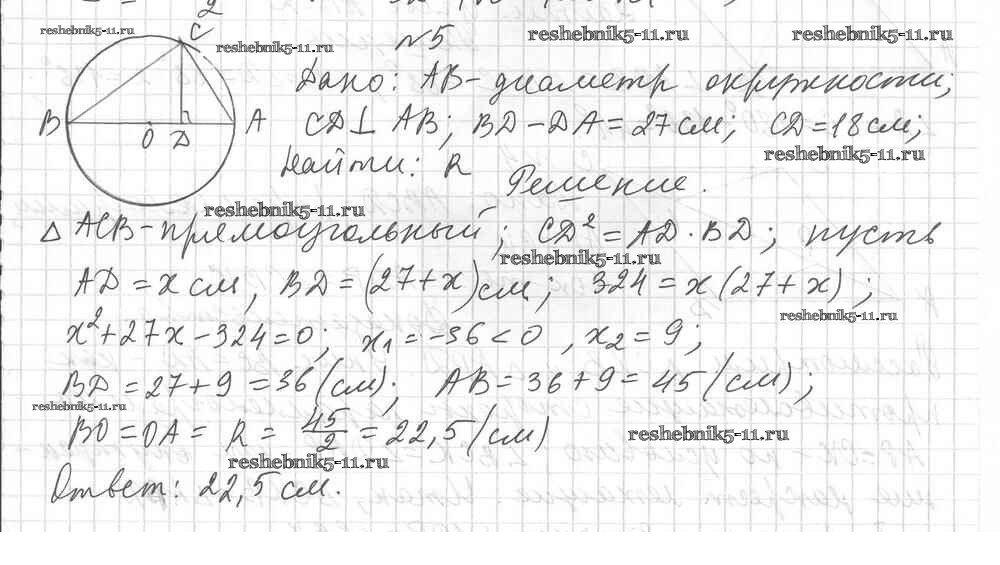 2
C
reshebnik5-11.ru
reshebnik5-11.ru
reshebnik5-11.ru
reshebnik5-11.ru
№5
Дано: AB - диаметр окружности;
B O D A
CD ⊥ AB; BD - DA = 27 см; CD = 18 см;
reshebnik5-11.ru
Найти: R
Решение.
reshebnik5-11.ru
△ ACB - прямоугольный; CD² = AD · BD; пусть
reshebnik5-11.ru
AD = x см, BD = (27 + x) см; 324 = x (27 + x);
reshebnik5-11.ru
x² + 27x - 324 = 0; x₁ = -36 < 0, x₂ = 9;
BD = 27 + 9 = 36 (см); AB = 36 + 9 = 45 (см);
reshebnik5-11.ru
BO = OA = R = 45/2 = 22,5 (см)
reshebnik5-11.ru
reshebnik5-11.ru
Ответ: 22,5 см.